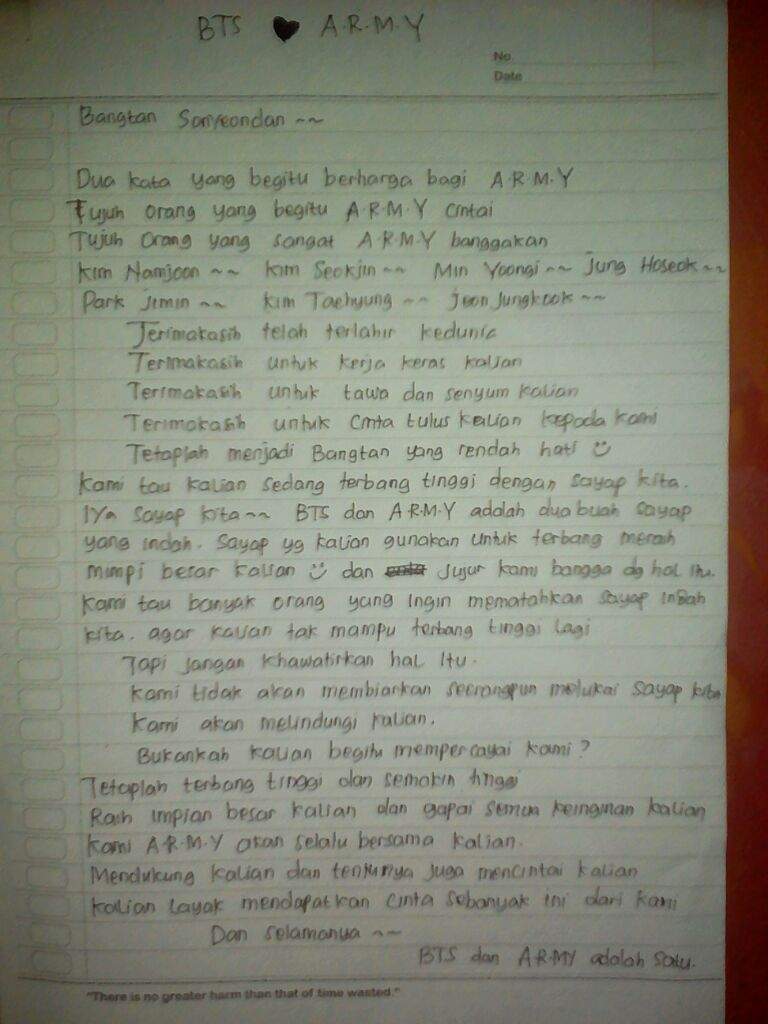 BTS ♥ A.R.M.Y
No.
Date
Bangtan Sonyeondan ~~
Dua kata yang begitu berharga bagi A.R.M.Y
Tujuh orang yang begitu A.R.M.Y cintai
Tujuh orang yang sangat A.R.M.Y banggakan
Kim Namjoon ~~ Kim Seokjin ~~ Min Yoongi ~~ Jung Hoseok ~~
Park Jimin ~~ Kim Taehyung ~~ Jeon Jungkook ~~
Terimakasih telah terlahir kedunia
Terimakasih untuk kerja keras kalian
Terimakasih untuk tawa dan senyum kalian
Terimakasih untuk cinta tulus kalian kepada kami
Tetaplah menjadi Bangtan yang rendah hati ☺
Kami tau kalian sedang terbang tinggi dengan sayap kita.
Iya sayap kita ~~ BTS dan A.R.M.Y adalah dua buah sayap
yang indah. Sayap yg kalian gunakan untuk terbang meraih
mimpi besar kalian ☺ dan jujur kami bangga dg hal itu.
Kami tau banyak orang yang ingin mematahkan sayap indah
kita. agar kalian tak mampu terbang tinggi lagi
Tapi jangan khawatirkan hal itu.
Kami tidak akan membiarkan seorangpun melukai sayap kita
Kami akan melindungi kalian.
Bukankah kalian begitu mempercayai kami?
Tetaplah terbang tinggi dan semakin tinggi
Raih impian besar kalian dan gapai semua keinginan kalian
Kami A.R.M.Y akan selalu bersama kalian.
Mendukung kalian dan tentunya juga mencintai kalian
Kalian layak mendapatkan cinta sebanyak ini dari kami
Dan selamanya ~~
BTS dan A.R.M.Y adalah satu.
"There is no greater harm than that of time wasted."